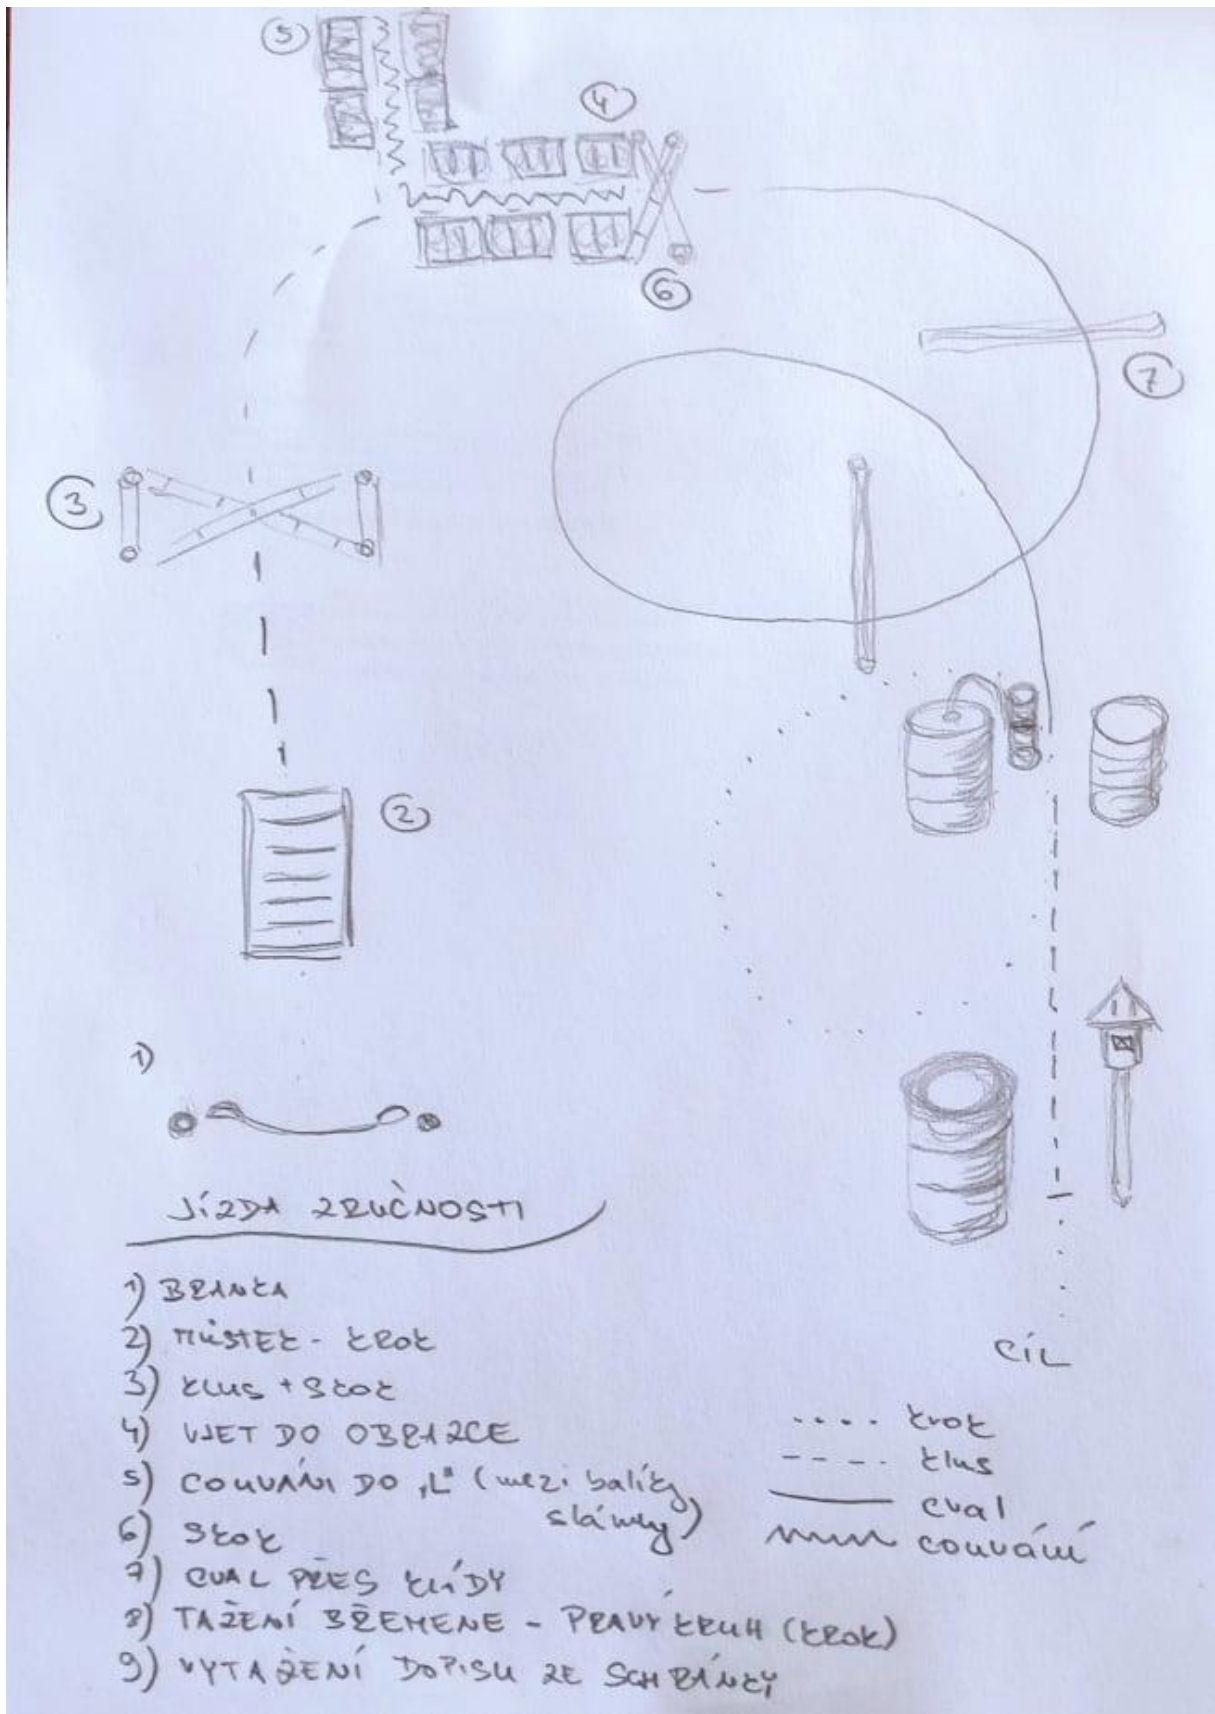 5
4
6
7
3
2
1)
JÍZDA ZRUČNOSTI
1) BRANKA
2) MŮSTEK - KROK
3) KLUS + SKOK
4) VJET DO OBRAZCE
5) COUVÁNÍ DO „L" (mezi balíky
slámy)
6) SKOK
7) CVAL PŘES KLÁDY
8) TAŽENÍ BŘEMENE - PRAVÝ KRUH (KROK)
9) VYTAŽENÍ DOPISU ZE SCHRÁNKY
CÍL
.... krok
---- klus
cval
couvání